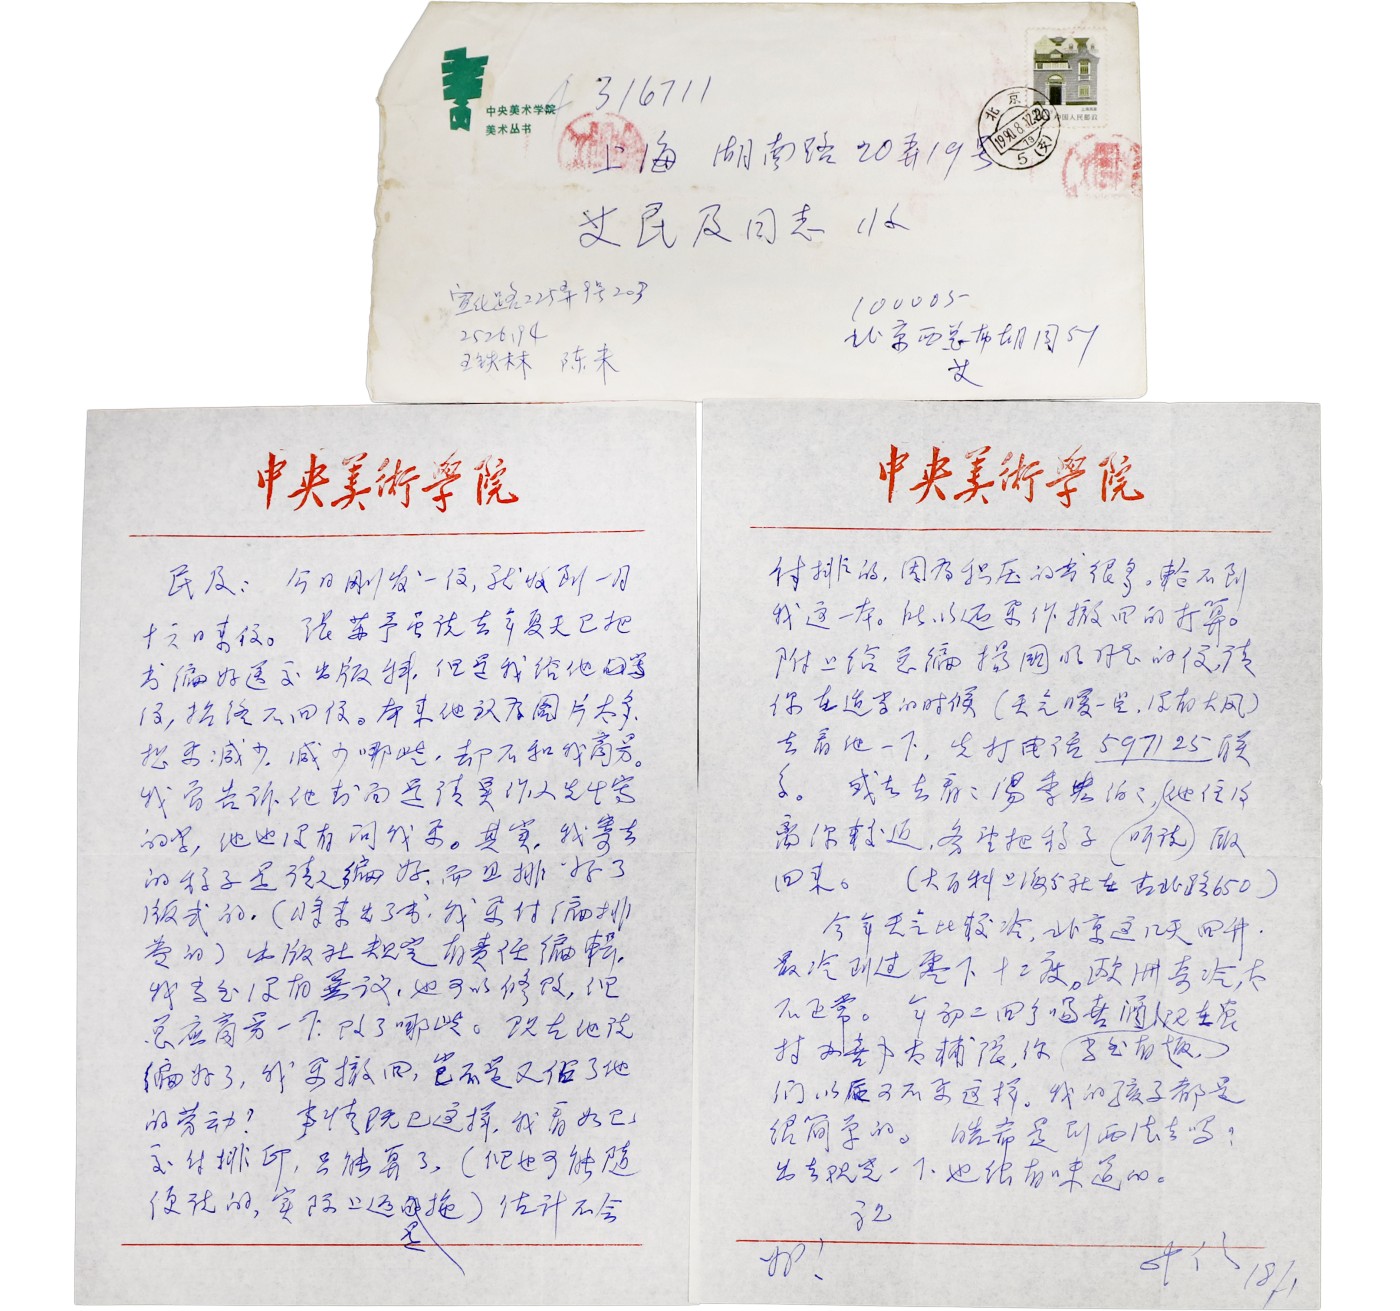 中央美术学院
美术丛书
316711
上海 湖南路20弄19号
艾民及同志 收
上海民居
中国人民邮政
北京
1990.8.12.20
19
5(支)
宣化路225弄9号203
2526194
王铁林 陈来
100005
北京西总布胡同51
艾
中央美術學院
民及: 今日刚发一信,就收到一月
十六日来信。张苏予虽说去年夏天已把
书编好送交出版科,但是我给他写
信,始终不回信。本来他认为图片太多,
想要减少,减少哪些,却不和我商另。
我首告诉他封面是请吴作人先生写
的字,他也没有问我要。其实,我寄去
的稿子是请人编好,而且排好了
版式的,(将来出了书,我要付编排
费的)出版社规定有责任编辑,
我当然没有异议,也可以修改,但
总应商另一下改了哪些。现在他说
编好了,我要撤回,岂不是又但了他
的劳动? 事情既已这样,我看如已
交付排印,只能算了,(但也可能随
便说的,实际上还是拖)估计不会
中央美術學院
付排的,因为积压的书很多。轮不到
我这一本。所以还要作撤回的打算。
附上给总编 的信,请
你在适当的时候(天气暖一些,没有大风)
去看他一下,先打电话597125联
系。 或去看看汤季宏伯伯,他住得
离你较近,务望把稿子(听说)取
回来。 (大百科上海分社在古北路650)
今年天气比较冷,北京这几天回升,
最冷到过零下十二度。欧洲奇冷,太
不正常。 年初二回了吗喜酒(现在农
村办喜事太铺张,你 当然有趣,)
们以后可不要这样。我的孩子都是
很简单的。 皓希是到西德去吗?
出去观光一下也很有味道的。
祝
好!
中信 18/1